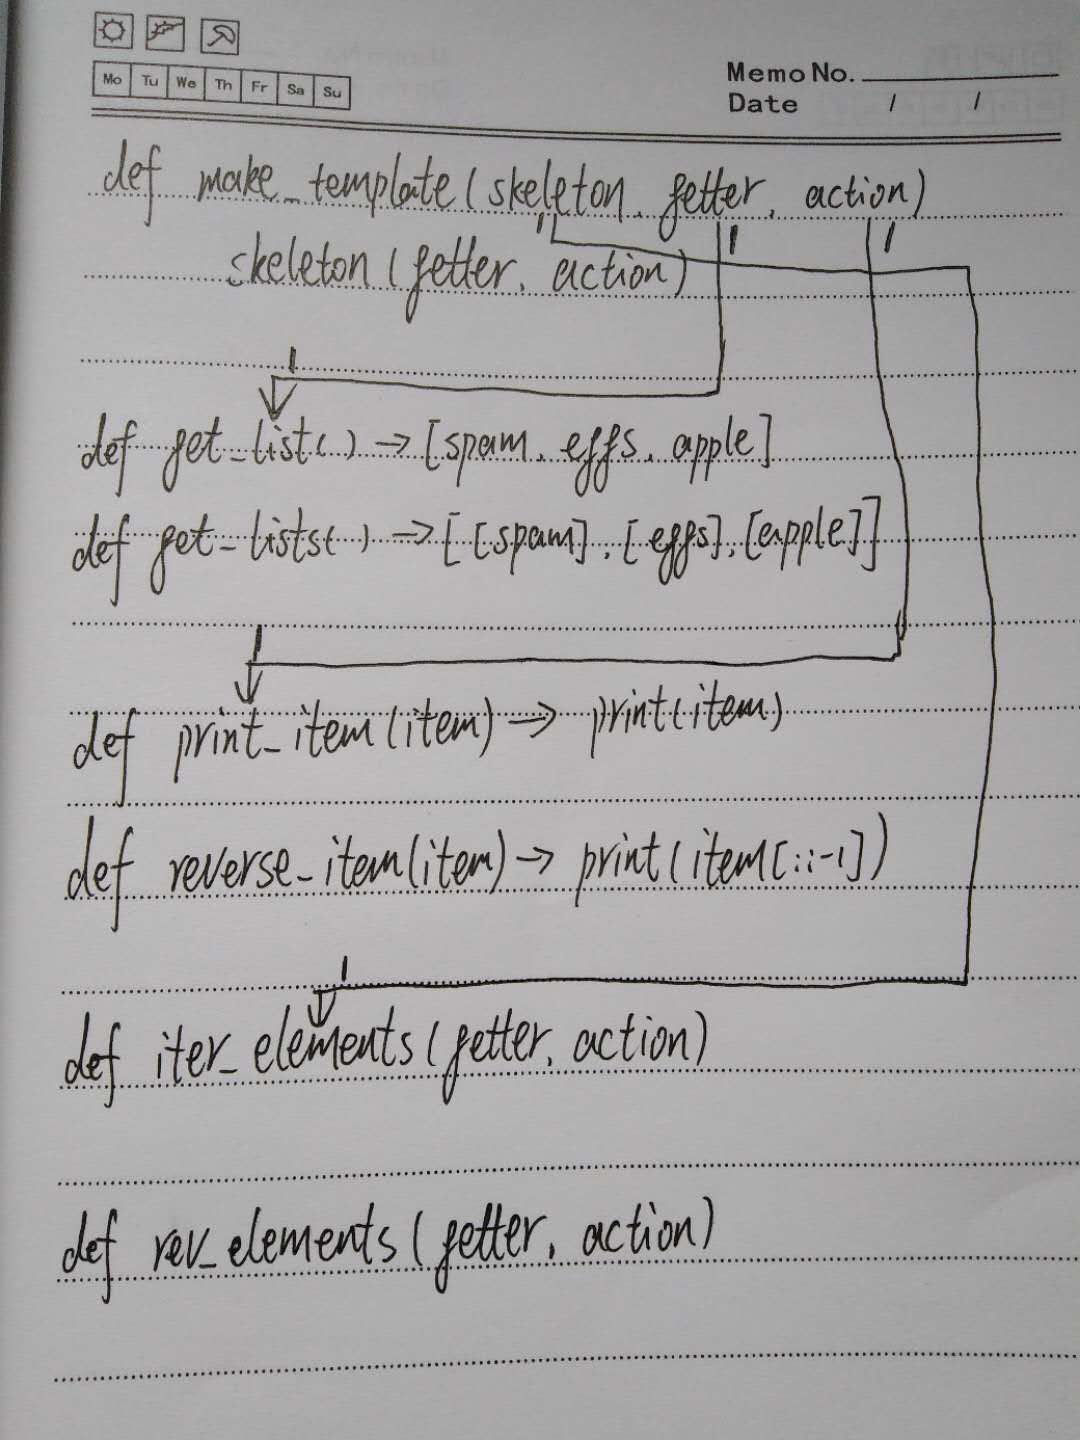 Mo Tu We Th Fr Sa Su
Memo No.
Date / /
def make_template(skeleton, getter, action)
skeleton(getter, action)
def get_list() → [spam, eggs, apple]
def get_lists() → [[spam], [eggs], [apple]]
def print_item(item) → print(item)
def reverse_item(item) → print(item[::-1])
def iter_elements(getter, action)
def rev_elements(getter, action)